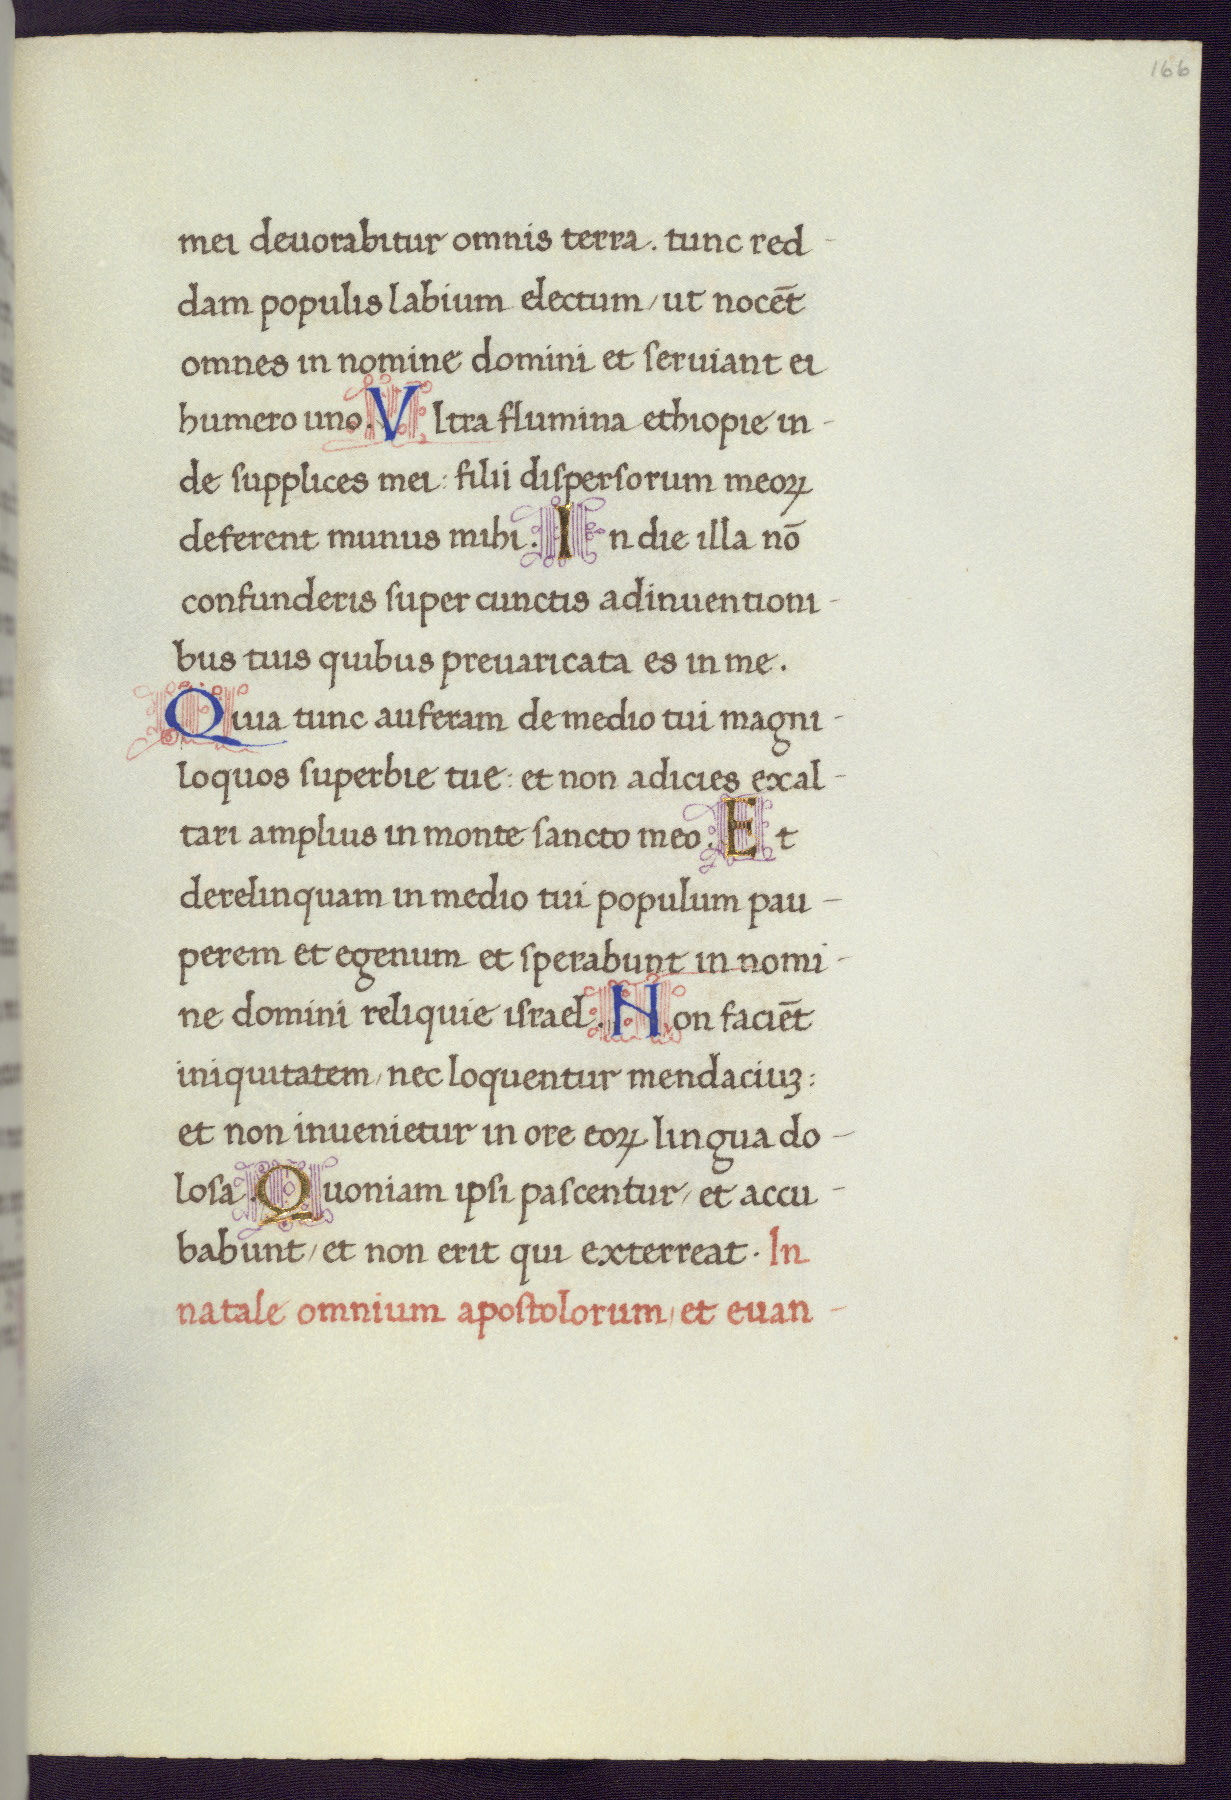 166
mei deuorabitur omnis terra. tunc red-
dam populis labium electum/ ut nocēt
omnes in nomine domini et seruiant ei
humero uno. Vltra flumina ethiopie in-
de supplices mei: filii dispersorum meoꝝ
deferent munus mihi. In die illa nō
confunderis super cunctis adinuentioni-
bus tuis quibus preuaricata es in me.
Quia tunc auferam de medio tui magni-
loquos superbie tue: et non adicies exal-
tari amplius in monte sancto meo. Et
derelinquam in medio tui populum pau-
perem et egenum et sperabunt in nomi-
ne domini reliquie israel. Non faciēt
iniquitatem/ nec loquentur mendaciuꝫ:
et non inuenietur in ore eoꝝ lingua do-
losa. Quoniam ipsi pascentur/ et accu-
babunt/ et non erit qui exterreat. In
natale omnium apostolorum/ et euan-